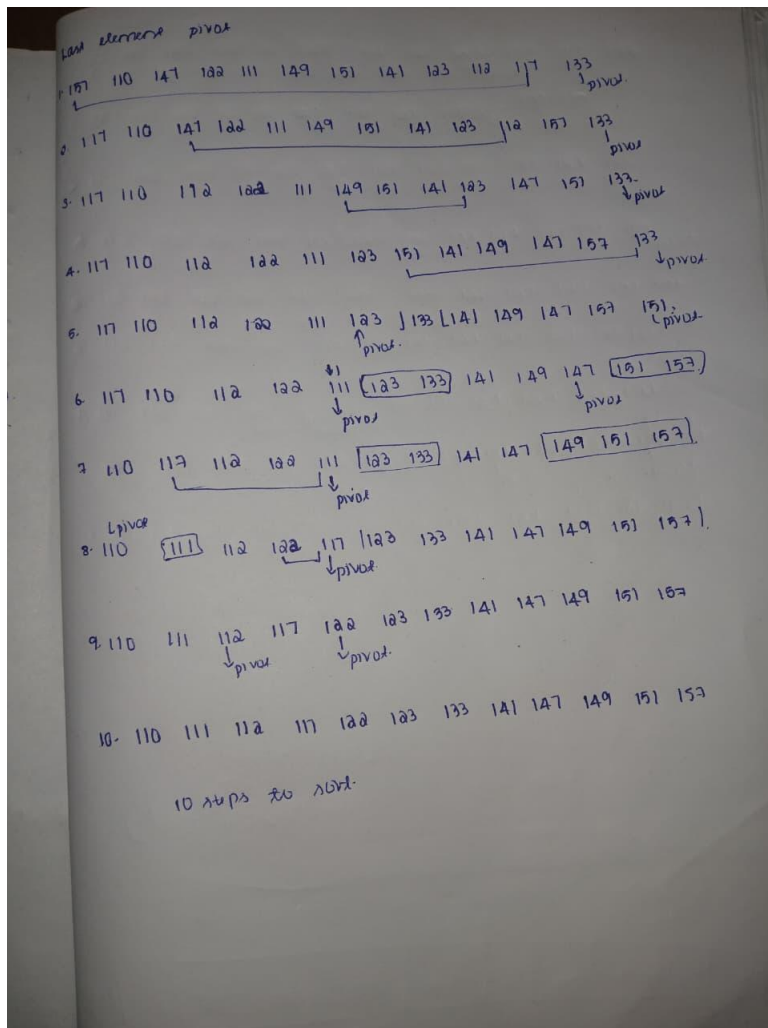 Last element pivot
1. 157 110 147 122 111 149 151 141 123 112 117 133
pivot.
2. 117 110 147 122 111 149 151 141 123 112 157 133
pivot
3. 117 110 112 122 111 149 151 141 123 147 157 133
pivot
4. 117 110 112 122 111 123 151 141 149 147 157 133
pivot
5. 117 110 112 122 111 123 ] 133 [ 141 149 147 157 151
pivot. pivot
6. 117 110 112 122 111 123 133 141 149 147 151 157
pivot pivot
7 110 117 112 122 111 123 133 141 147 149 151 157
pivot
pivot
8. 110 111 112 122 117 123 133 141 147 149 151 157
pivot
9. 110 111 112 117 122 123 133 141 147 149 151 157
pivot pivot.
10- 110 111 112 117 122 123 133 141 147 149 151 157
10 steps to sort.